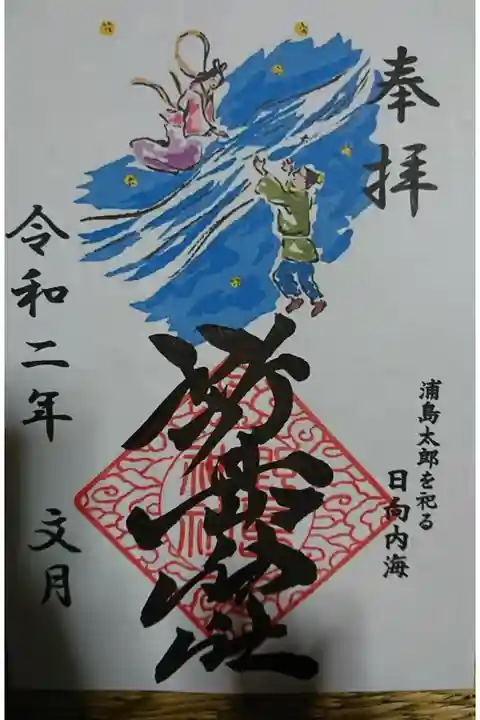 奉拝
浦島太郎を祀る
日向内海
野島神社
令和二年 文月